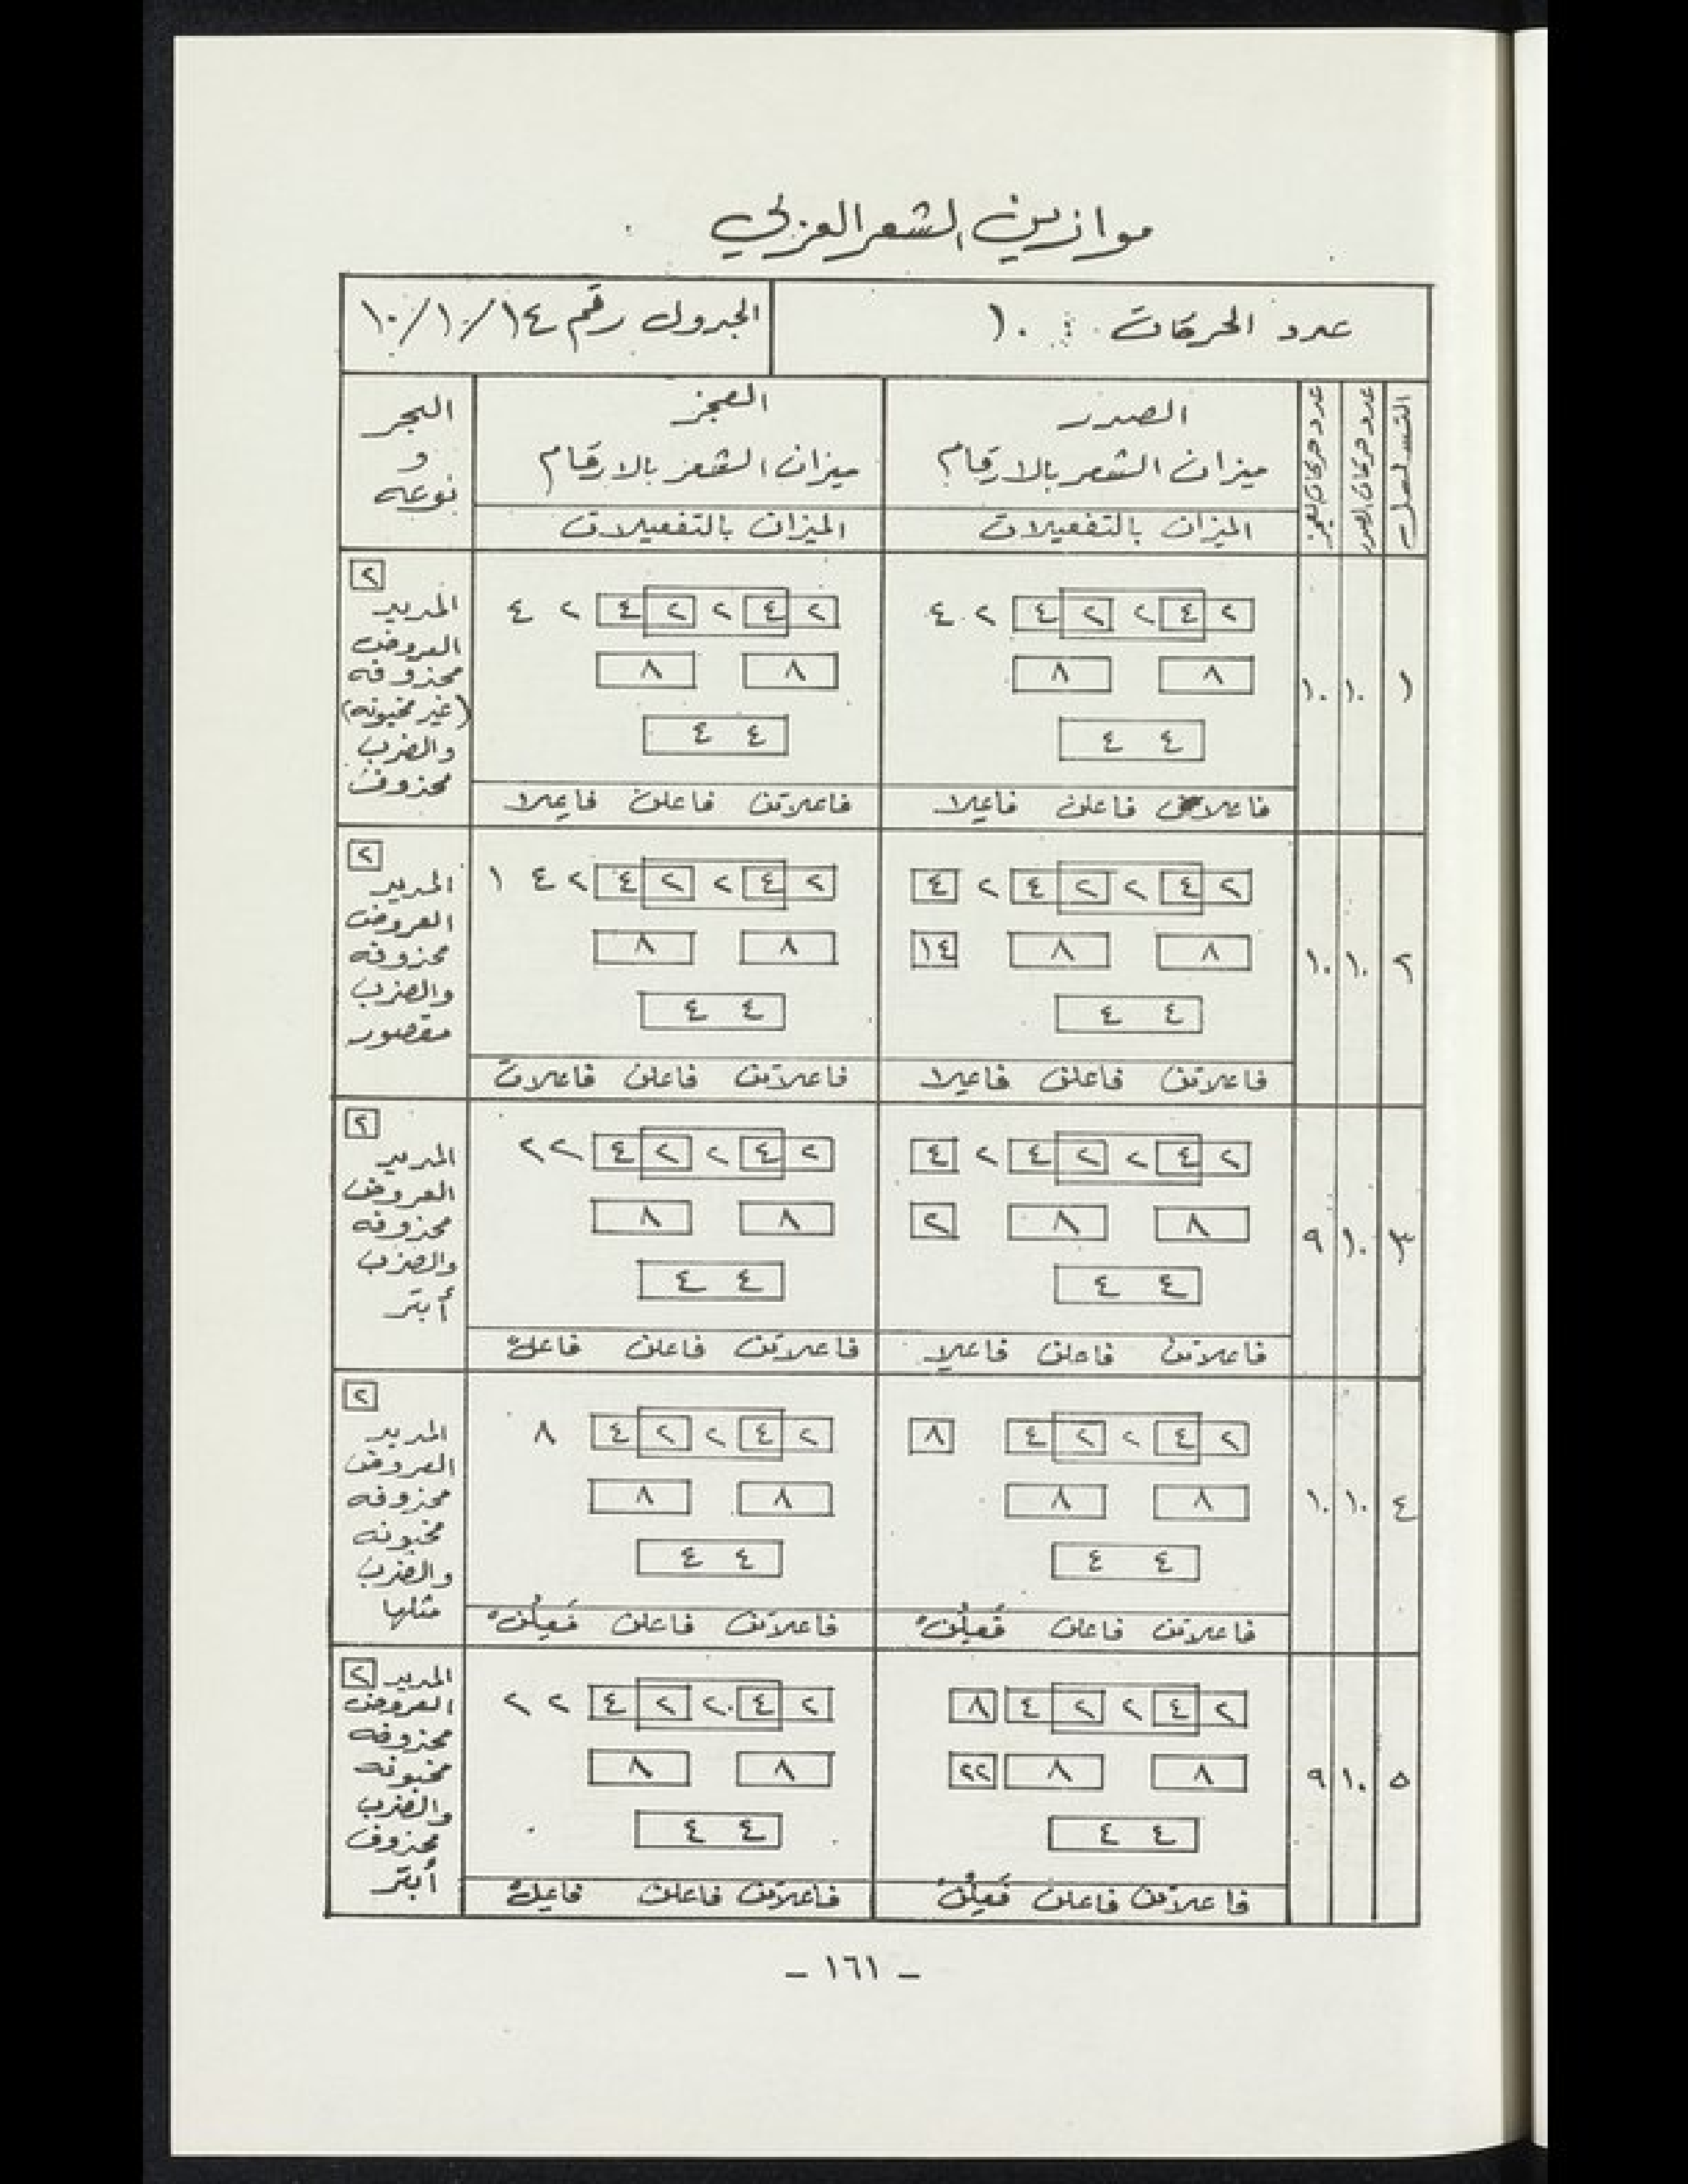 موازين الشعر العربي
عدد الحركات : ١٠
الجدول رقم ١٠/١٠/١٤
التسلسل
عدد حركات الصدر
عدد حركات العجز
الصدر
ميزان الشعر بالارقام
الميزان بالتفعيلات
العجز
ميزان الشعر بالارقام
الميزان بالتفعيلات
البحر
و
نوعه
١
١٠
١٠
٢ ٤ ٢ ٢ ٤ ٢ ٤
٨ ٨
٤ ٤
فاعلاتن فاعلن فاعلا
٢ ٤ ٢ ٢ ٤ ٢ ٤
٨ ٨
٤ ٤
فاعلاتن فاعلن فاعلا
٢
المديد
العروض
محذوفه
(غير مخبونه)
والضرب
محذوف
٢
١٠
١٠
٢ ٤ ٢ ٢ ٤ ٢ ٤
٨ ٨ ١٤
٤ ٤
فاعلاتن فاعلن فاعلا
٢ ٤ ٢ ٢ ٤ ٢ ٤ ١
٨ ٨
٤ ٤
فاعلاتن فاعلن فاعلات
٢
المديد
العروض
محذوفه
والضرب
مقصور
٣
١٠
٩
٢ ٤ ٢ ٢ ٤ ٢ ٤
٨ ٨ ٢
٤ ٤
فاعلاتن فاعلن فاعلا
٢ ٤ ٢ ٢ ٤ ٢ ٢
٨ ٨
٤ ٤
فاعلاتن فاعلن فاعلْ
٢
المديد
العروض
محذوفه
والضرب
أبتر
٤
١٠
١٠
٢ ٤ ٢ ٢ ٤ ٨
٨ ٨
٤ ٤
فاعلاتن فاعلن فَعِلُنْ
٢ ٤ ٢ ٢ ٤ ٨
٨ ٨
٤ ٤
فاعلاتن فاعلن فَعِلُنْ
٢
المديد
العروض
محذوفه
مخبونه
والضرب
مثلها
٥
١٠
٩
٢ ٤ ٢ ٢ ٤ ٨
٨ ٨ ٢٢
٤ ٤
فاعلاتن فاعلن فَعِلُنْ
٢ ٤ ٢ ٢ ٤ ٢ ٢
٨ ٨
٤ ٤
فاعلاتن فاعلن فاعلْ
المديد ٢
العروض
محذوفه
مخبونه
والضرب
محذوف
أبتر
– ١٦١ –